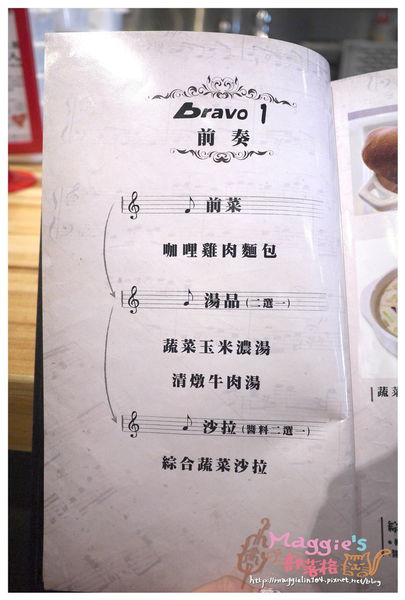 bravo 1
前奏
前菜
咖哩雞肉麵包
湯品(二選一)
蔬菜玉米濃湯
清燉牛肉湯
沙拉(醬料二選一)
綜合蔬菜沙拉
蔬菜
Maggie's
部落格
http://maggielin104.pixnet.net/blog